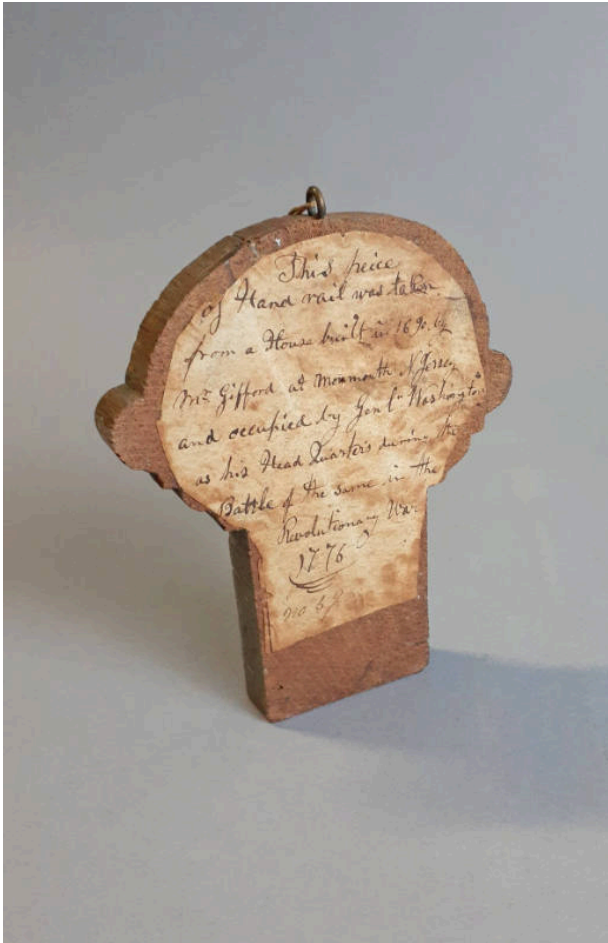 This peice
of Hand rail was taken
from a House built in 1690. by
Mr. Gifford at Monmouth N. Jersey
and occupied by Genl. Washington
as his Head Quarters during the
Battle of the same in the
Revolutionary War
1776